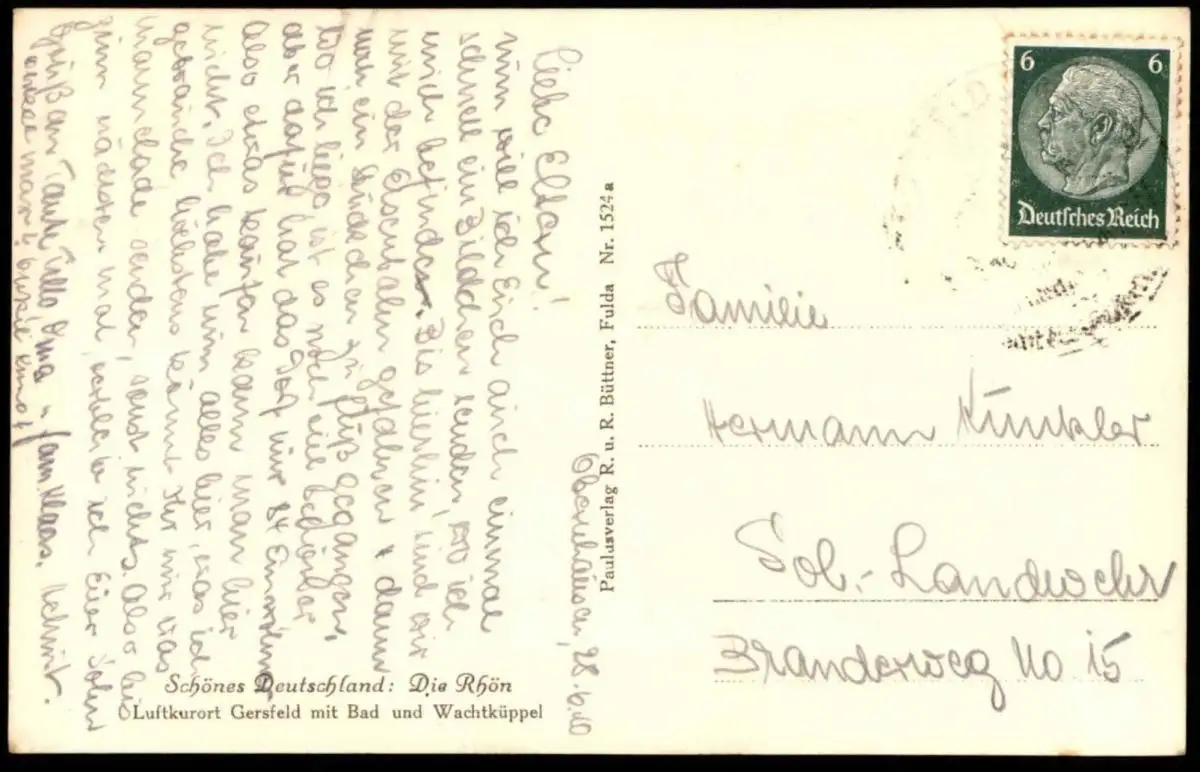 Oberhausen, 28.6.40
Liebe Eltern!
nun will ich Euch auch einmal
schnell ein Bildchen senden, wo ich
mich befinde. Bis hierhin sind wir
mit der Eisenbahn gefahren & dann
noch ein Stündchen zu Fuß gegangen,
wo ich liege, ist es noch viel
aber dafür hat das Dorf nur 84 Einwohner
Also etwas kaufen kann man hier
nicht. Ich habe nun alles hier, was ich
gebrauche höchstens könnt Ihr mir was
senden, sonst nichts. Also bis
zum nächsten mal, verbleibe ich Euer Sohn
Gruß an Tante Oma u. fam. Klaas. Helmut.
Schönes Deutschland: Die Rhön
Luftkurort Gersfeld mit Bad und Wachtküppel
Paulusverlag R. u. R. Büttner, Fulda Nr. 1524 a
6 6
Deutsches Reich
Familie
Hermann Künkler
Sol.- Landwehr
Branderweg No 15